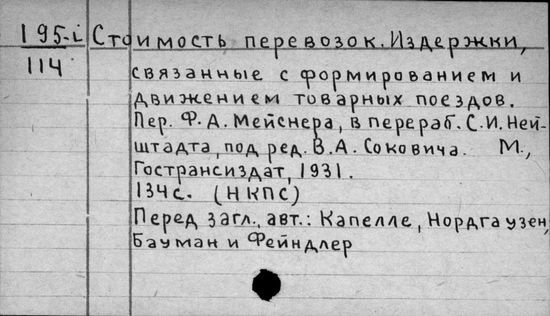 195-i Стоимость перевозок. Издержки,
114
связанные с формированием и
движением товарных поездов.
Пер. Ф. А. Мейснера, в перераб. С. И. Ней-
штадта, под ред. В. А. Соковича. М.,
Гострансиздат, 1931.
134 с. (НКПС)
Перед загл. авт.: Капелле, Нордгаузен,
Бауман и Фейндлер